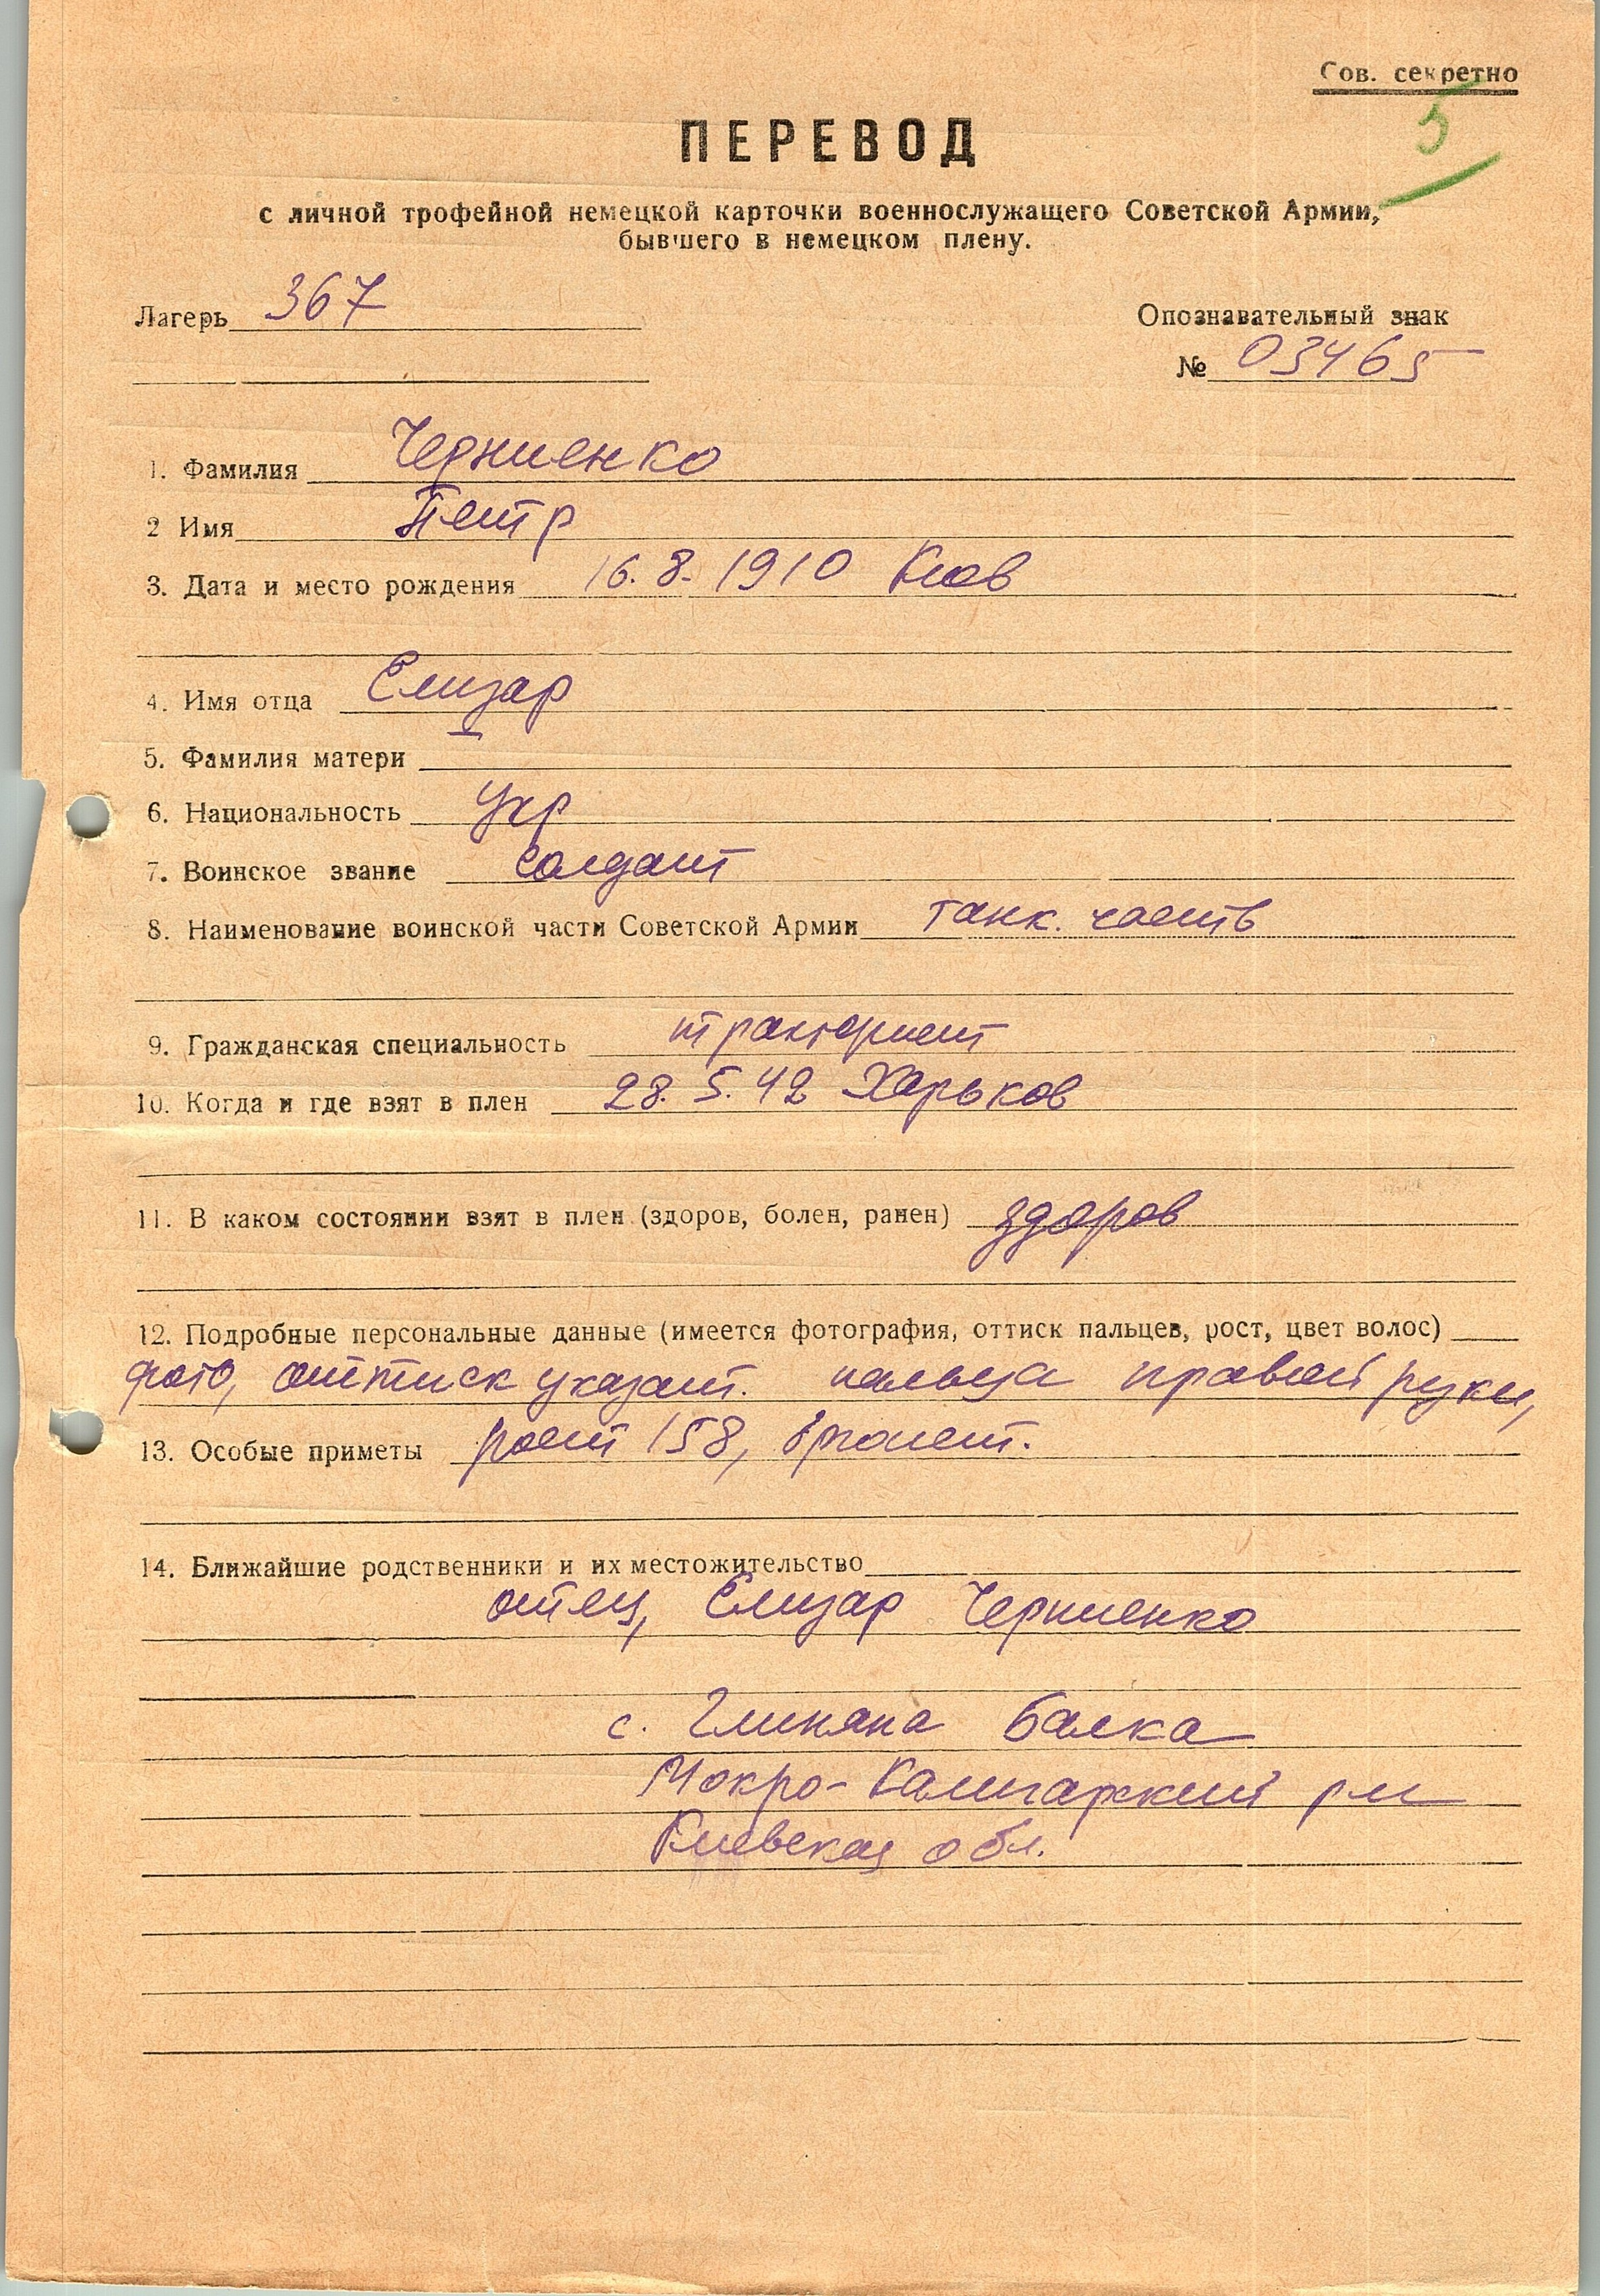 Сов. секретно
5
ПЕРЕВОД
с личной трофейной немецкой карточки военнослужащего Советской Армии,
бывшего в немецком плену.
Лагерь 367
Опознавательный знак
№ 03465
1. Фамилия Черниенко
2 Имя Петр
3. Дата и место рождения 16.8.1910 Киев
4. Имя отца Елизар
5. Фамилия матери
6. Национальность укр
7. Воинское звание солдат
8. Наименование воинской части Советской Армии танк. часть
9. Гражданская специальность тракторист
10. Когда и где взят в плен 28.5.42 Харьков
11. В каком состоянии взят в плен (здоров, болен, ранен) здоров
12. Подробные персональные данные (имеется фотография, оттиск пальцев, рост, цвет волос)
фото, оттиск указат. пальца правой руки,
13. Особые приметы рост 158,
14. Ближайшие родственники и их местожительство
отец, Елизар Черниенко
с. Глиняна Балка
Мокро-Калигарский р-н
Киевская обл.